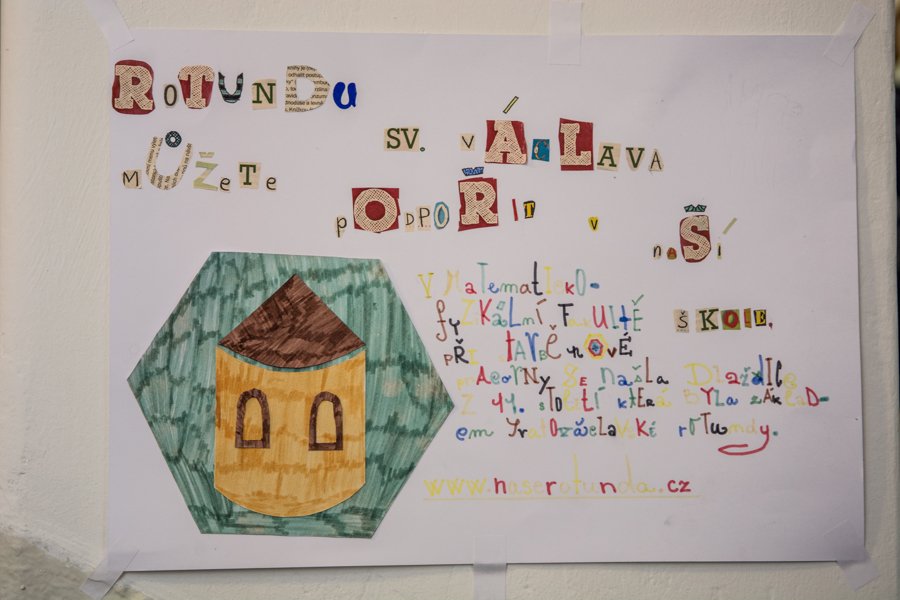 RoTUNDU
SV. VÁCLAVA
MŮŽeTe
pODPOŘIT v naŠí
V MaTematIcKO-
fyZIKáLní FakUltĚ ŠKOLE.
PŘI STAVBĚ nOVÉ
SE NašLa DlaždICe
Z 11. sTOLETÍ ktErá BYLa zÁKLaD-
em SvatOvácLaVsKé rOTundy.
www.naserotunda.cz